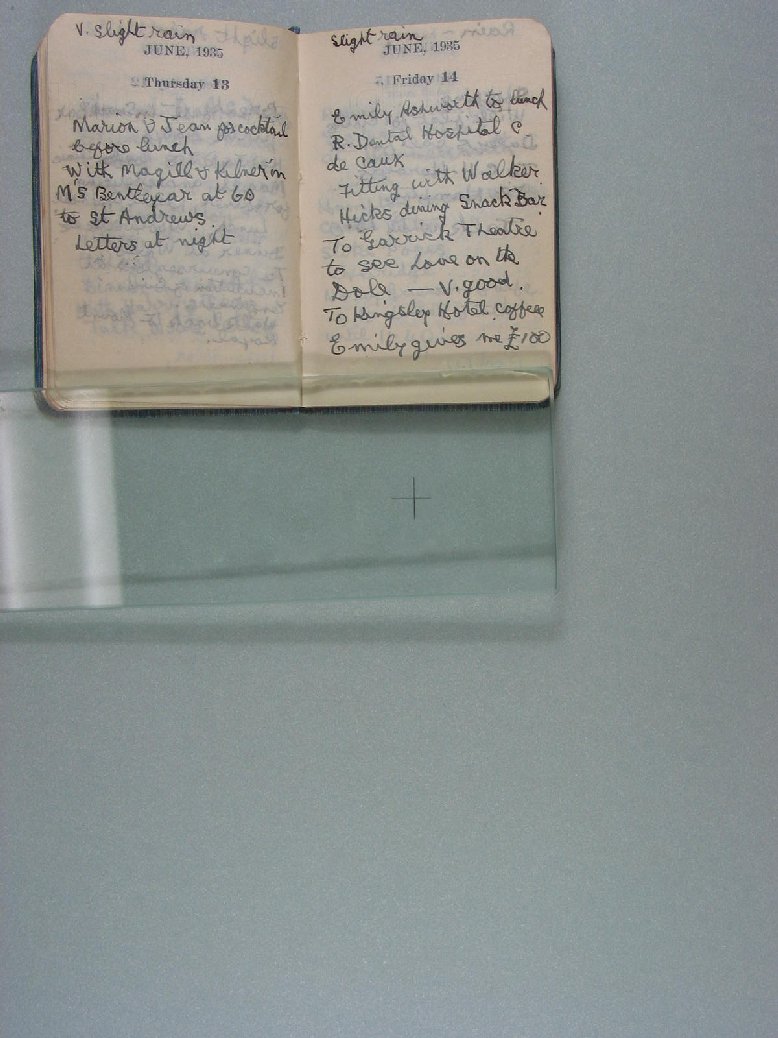 V. Slight rain
JUNE, 1935
Thursday 13
Marion & Jean for cocktail
before lunch
With Magill & Kilner in
M's Bentley car at 60
to St Andrews
Letters at night
Slight rain
JUNE, 1935
Friday 14
Emily Ashworth to lunch
R. Dental Hospital c.
de Caux
Fitting with Walker
Hicks dining Snack Bar
To Garrick Theatre
to see Love on the
Dole — V. good.
To Kingsley Hotel coffee
Emily gives me £100